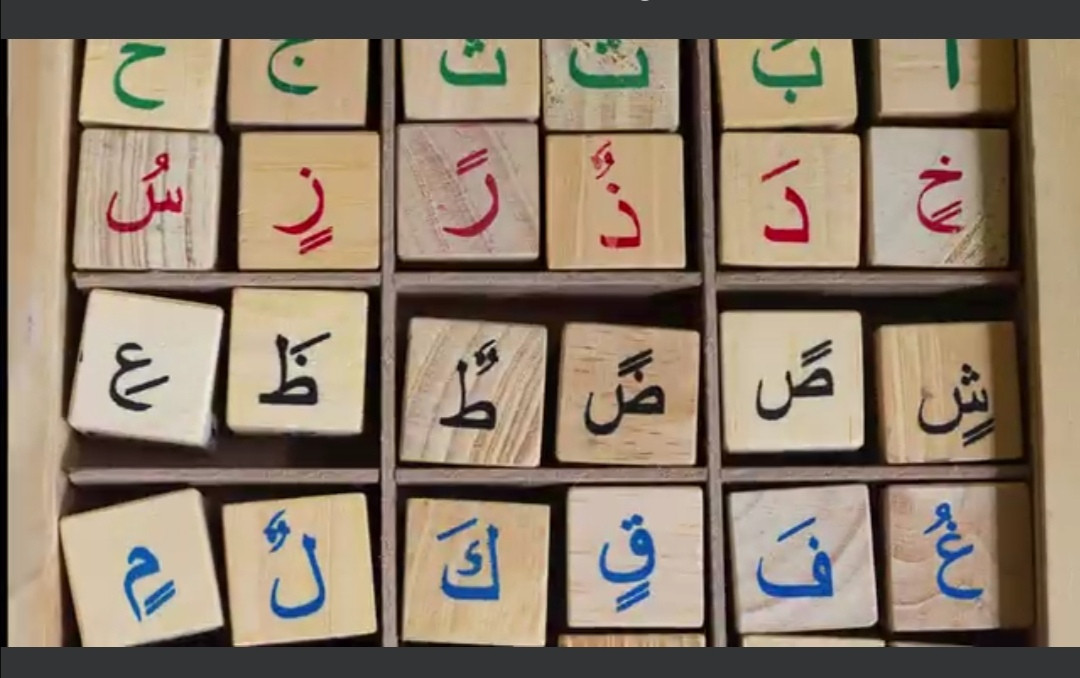 ا بَ ت ث ج ح
خٍ دَ ذٌ رً زٍ سُ
شٍ صً ضً طٌ ظَ عِ
غُ فَ قٍ كَ لٌ مٍ